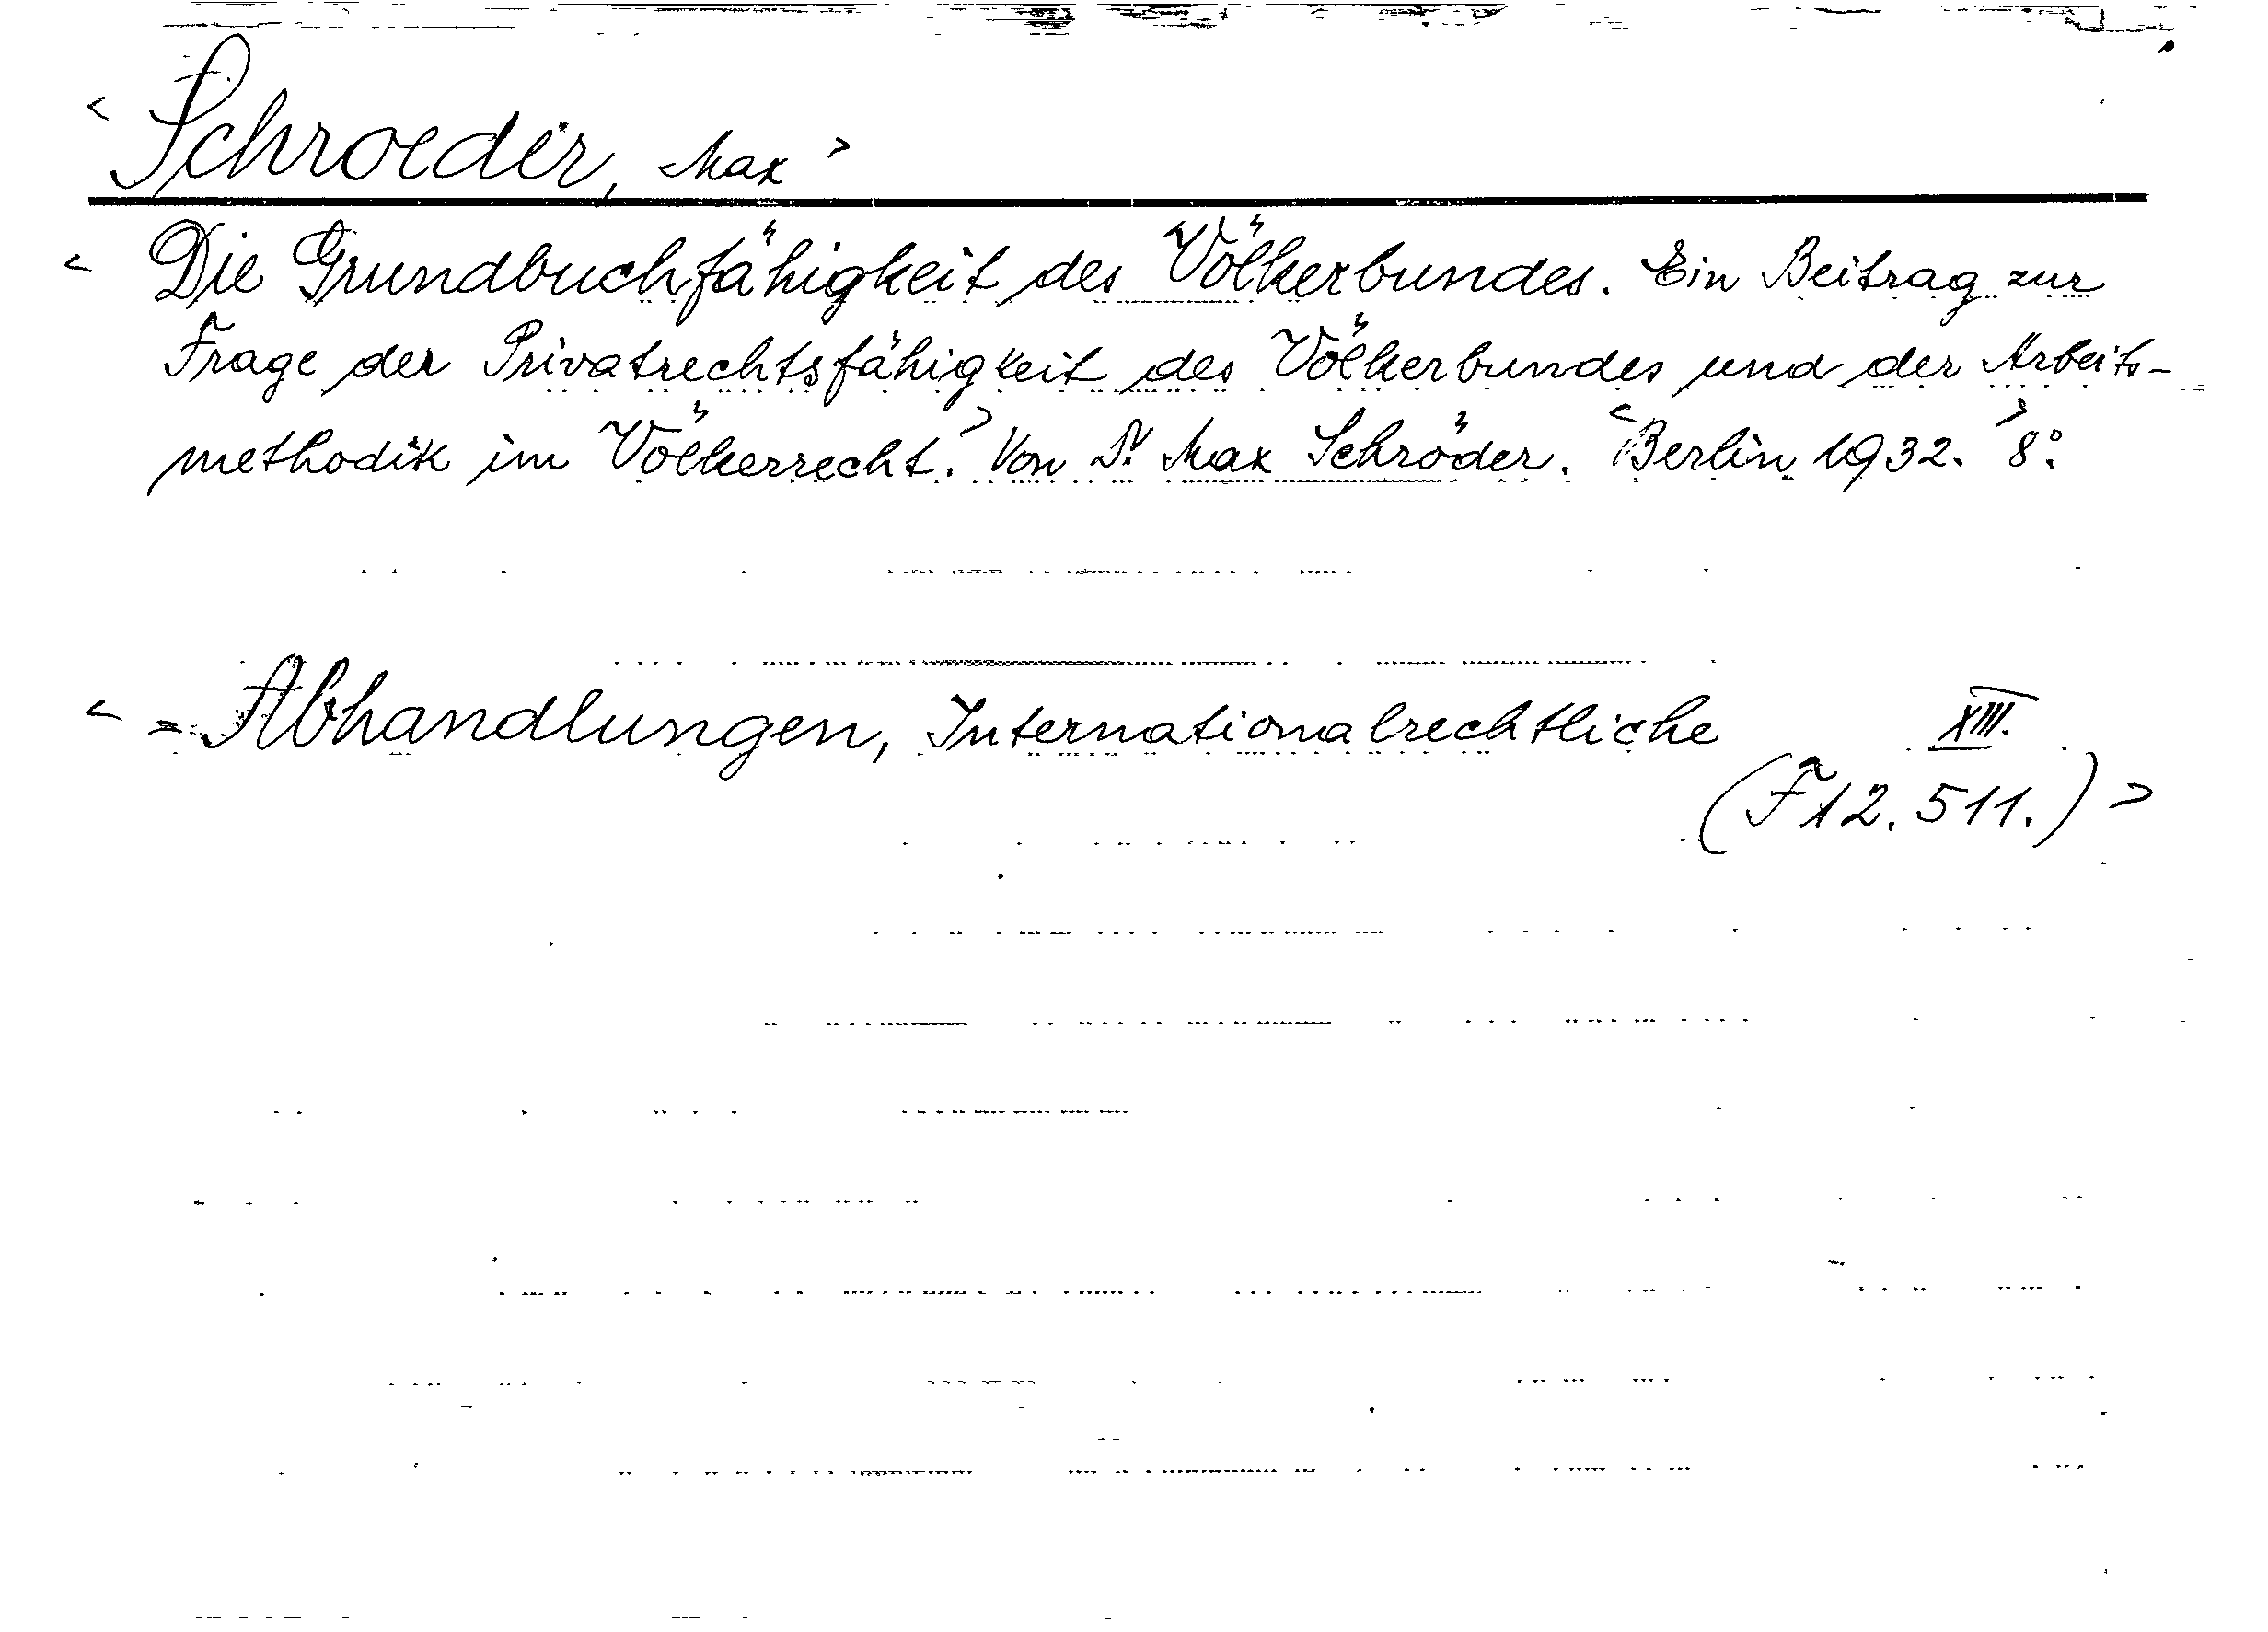 < Schroeder, Max >
< Die Grundbuchfähigkeit des Völkerbundes. Ein Beitrag zur
Frage der Privatrechtsfähigkeit des Völkerbundes und der Arbeits-
methodik im Völkerrecht.> Von Dr. Max Schröder. <Berlin 1932.> 8°.
< = Abhandlungen, Internationalrechtliche XIII.
(F 12.511.) >